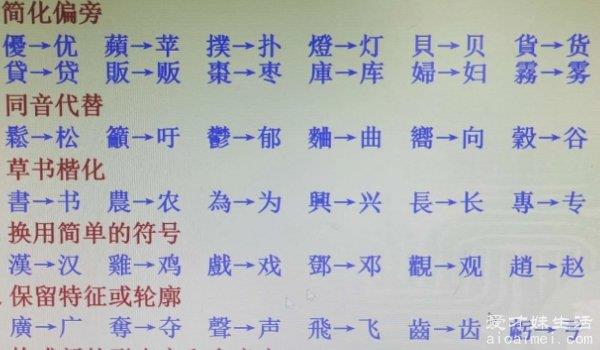 简化偏旁
優→优 蘋→苹 撲→扑 燈→灯 貝→贝 貨→货
貸→贷 販→贩 棗→枣 庫→库 婦→妇 霧→雾
同音代替
鬆→松 籲→吁 鬱→郁 麯→曲 嚮→向 穀→谷
草书楷化
書→书 農→农 為→为 興→兴 長→长 專→专
换用简单的符号
漢→汉 雞→鸡 戲→戏 鄧→邓 觀→观 趙→赵
保留特征或轮廓
廣→广 奪→夺 聲→声 飛→飞 齒→齿
爱才妹生活
aicaimei.com